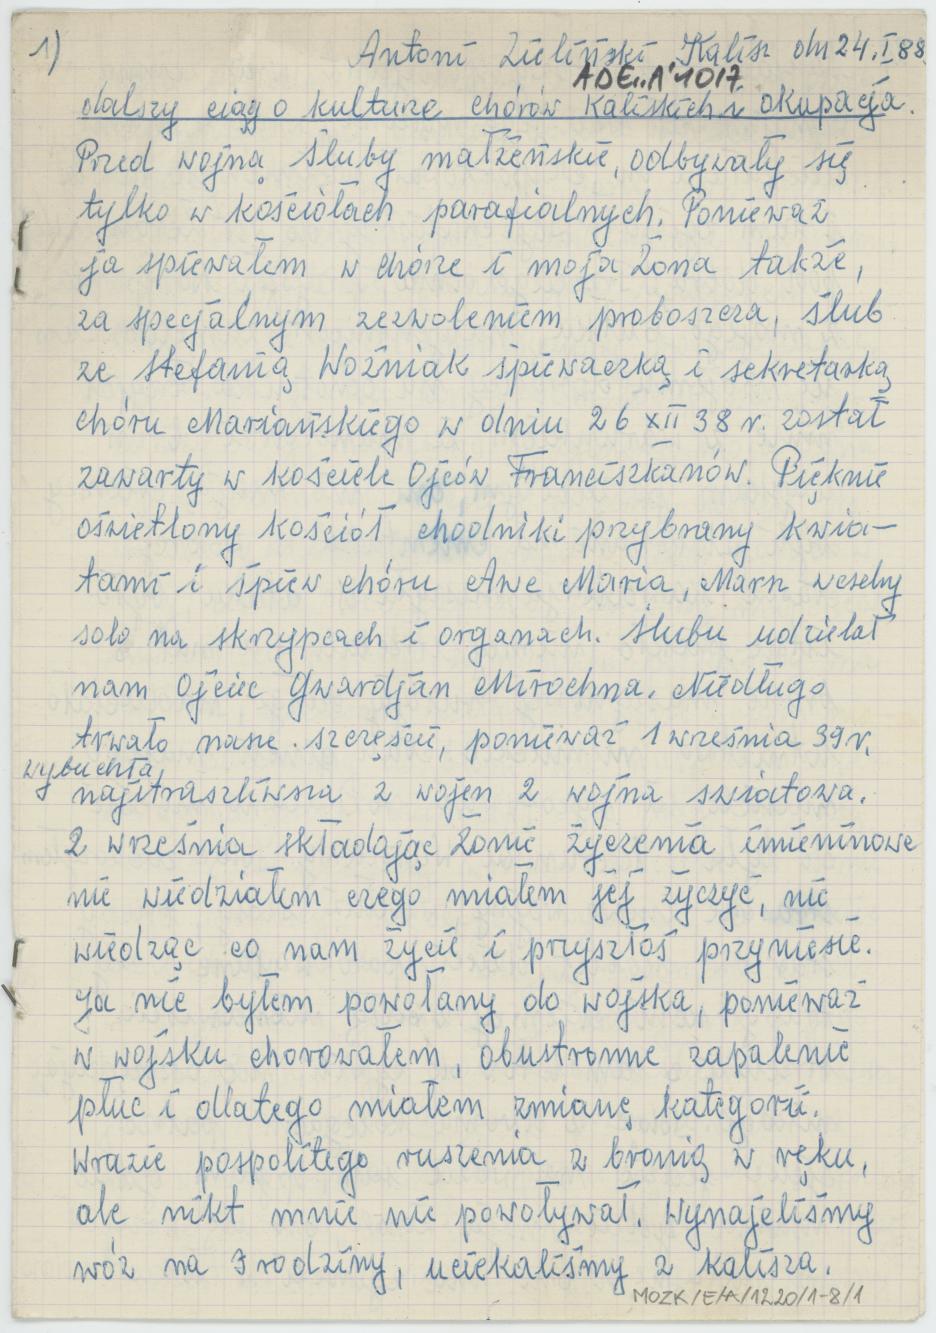 1) Antoni Zieliński Kalisz dn 24.I 88
ADE..A'1017
dalszy ciąg o kulturę chórów Kaliskich i okupacja.
Przed wojną śluby małżeńskie, odbywały się
tylko w kościołach parafialnych. Ponieważ
ja śpiewałem w chórze i moja żona także,
za specjalnym zezwoleniem proboszcza, ślub
ze Stefanią Woźniak śpiewaczką i sekretarką
chóru Mariańskiego w dniu 26 XII 38 r. został
zawarty w kościele Ojców Franciszkanów. Pięknie
oświetlony kościół chodniki przybrany kwia-
tami i śpiew chóru Awe Maria, Marsz weselny
solo na skrzypcach i organach. Ślubu udzielał
nam Ojciec Gwardjan Mirochna. Niedługo
trwało nasze szczęście, ponieważ 1 września 39 r.
wybuchła
najstraszliwsza z wojen 2 wojna swiatowa.
2 września składając żonie życzenia imieninowe
nie wiedziałem czego miałem jej życzyć, nie
wiedząc co nam życie i przyszłoś przyniesie.
Ja nie byłem powołany do wojska, ponieważ
w wojsku chorowałem, obustronne zapalenie
płuc i dlatego miałem zmianę kategorii.
Wrazie pospolitego ruszenia z bronią w ręku,
ale nikt mnie nie powoływał. Wynajeliśmy
wóz na 3 rodziny, uciekaliśmy z Kalisza.
MOZK/E/A/1220/1-8/1